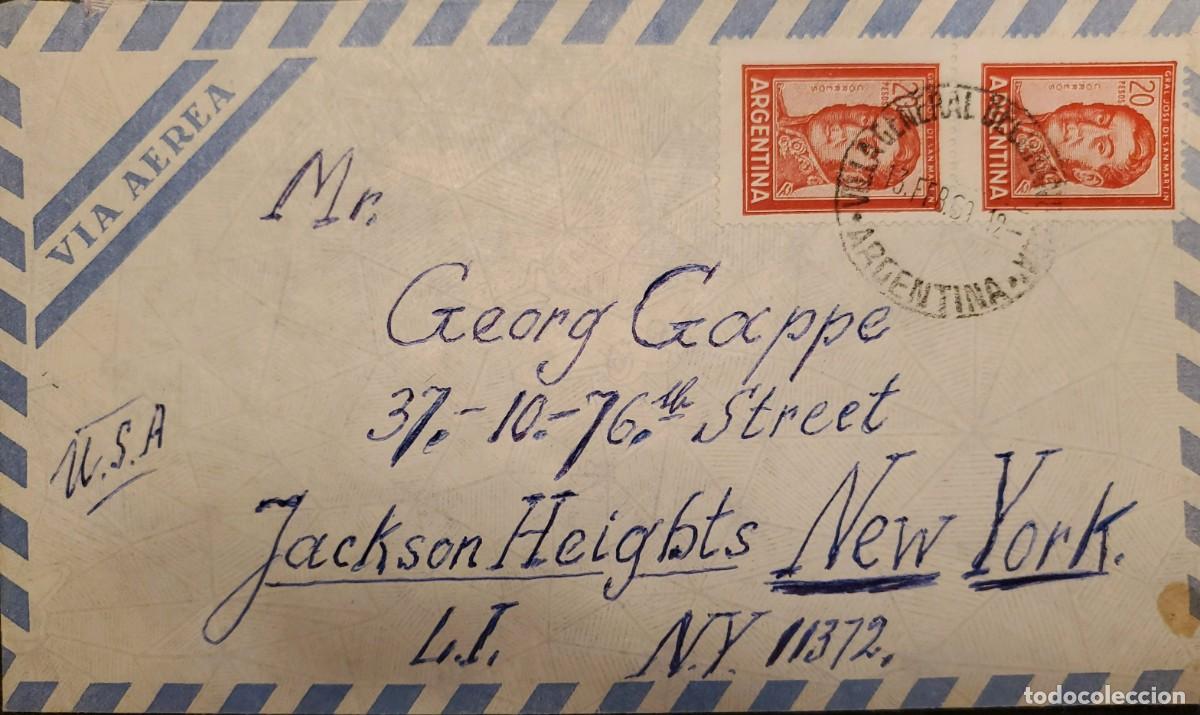 VIA AEREA
20
PESOS
CORREOS
GRAL. JOSE DE SAN MARTIN
ARGENTINA
20
PESOS
CORREOS
GRAL. JOSE DE SAN MARTIN
ARGENTINA
VILLA GENERAL BELGRANO
13. FEB. 69
ARGENTINA
Mr.
Georg Gappe
37.-10.-76.th Street
U.S.A
Jackson Heights New York.
L.I. N.Y. 11372.
todocoleccion